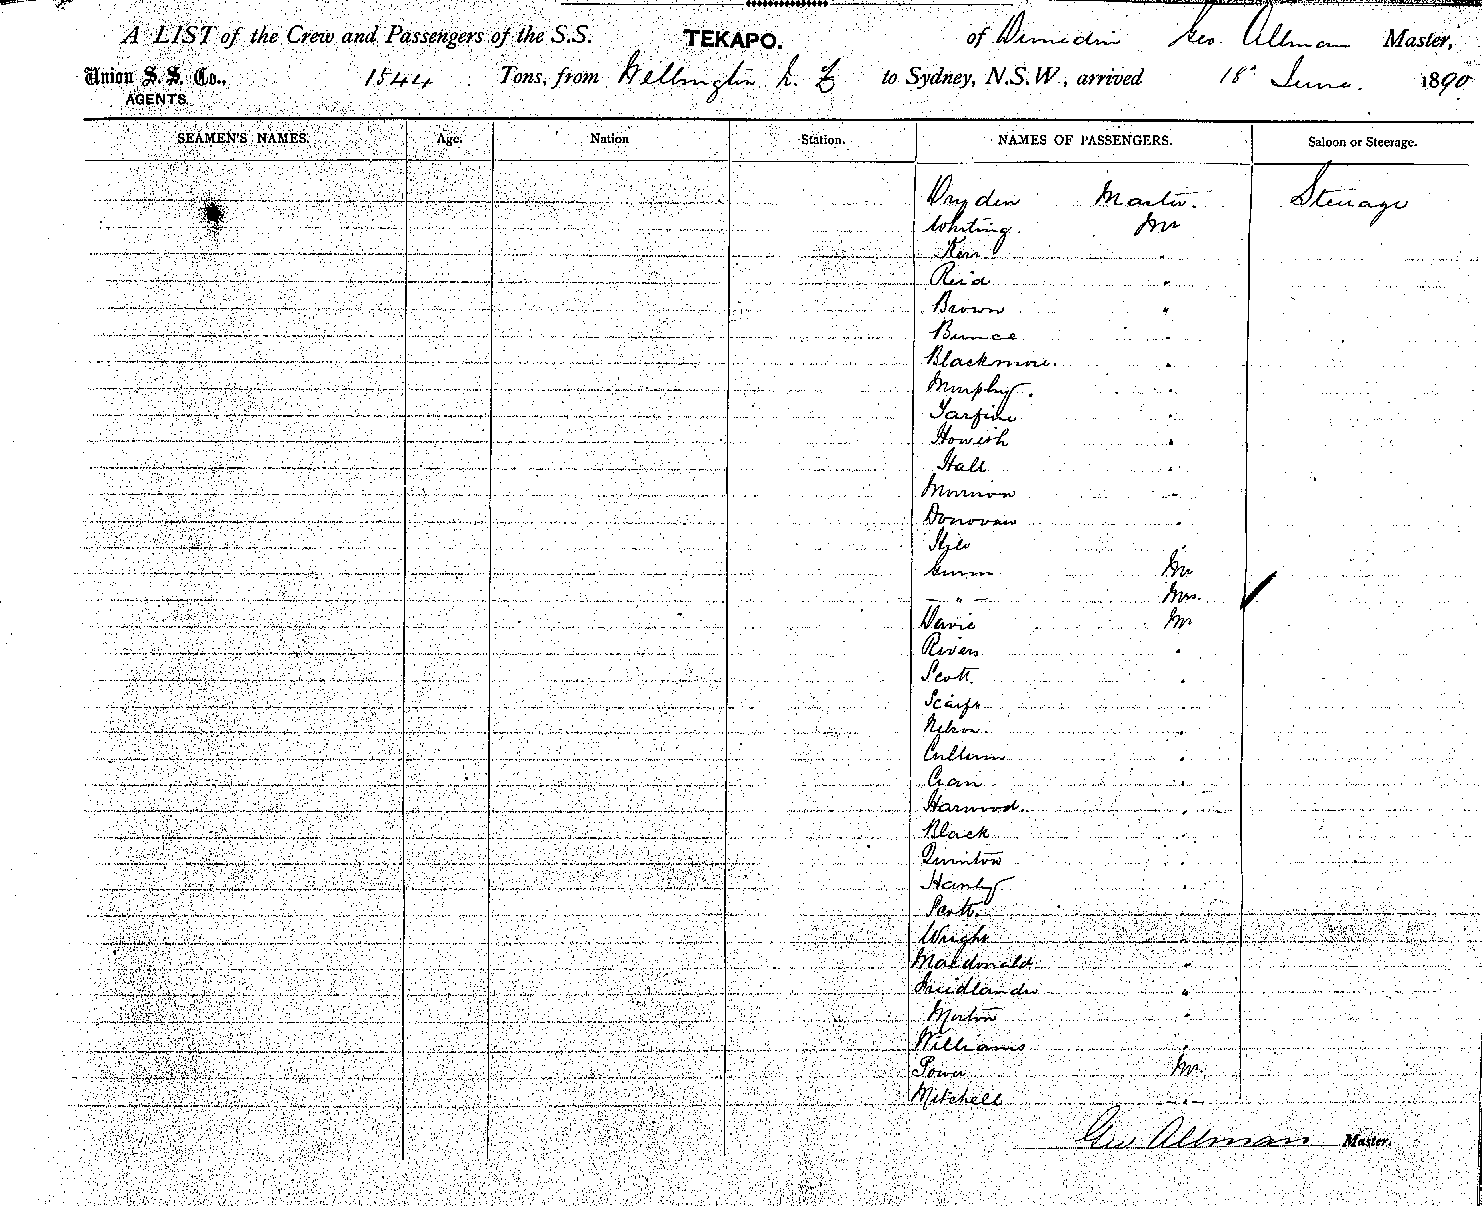 A LIST of the Crew and Passengers of the S.S. TEKAPO. of Dunedin Geo. Allman Master,
Union S. S. Co., AGENTS. 1544 Tons, from Wellington N. Z to Sydney, N.S.W., arrived 18th June. 1890
SEAMEN'S NAMES. Age. Nation Station. NAMES OF PASSENGERS. Saloon or Steerage.
Dryden Master. Steerage
Whiting. Mr
Kerr "
Reid "
Brown "
Bunce "
Blackmore. "
Murphy. "
"
Howish "
Hall "
Morrison "
Donovan "
"
Gunn Mr
— " — Mrs.
Davie Mr
Rivers "
Scott "
Scaife "
Nelson. "
Cullum "
"
Harwood. "
Black "
Quinton "
Hanley "
Scott. "
Wright "
Macdonald "
Friedlander "
Morton "
Williams "
Power Mr.
Mitchell "
Geo Allman Master.